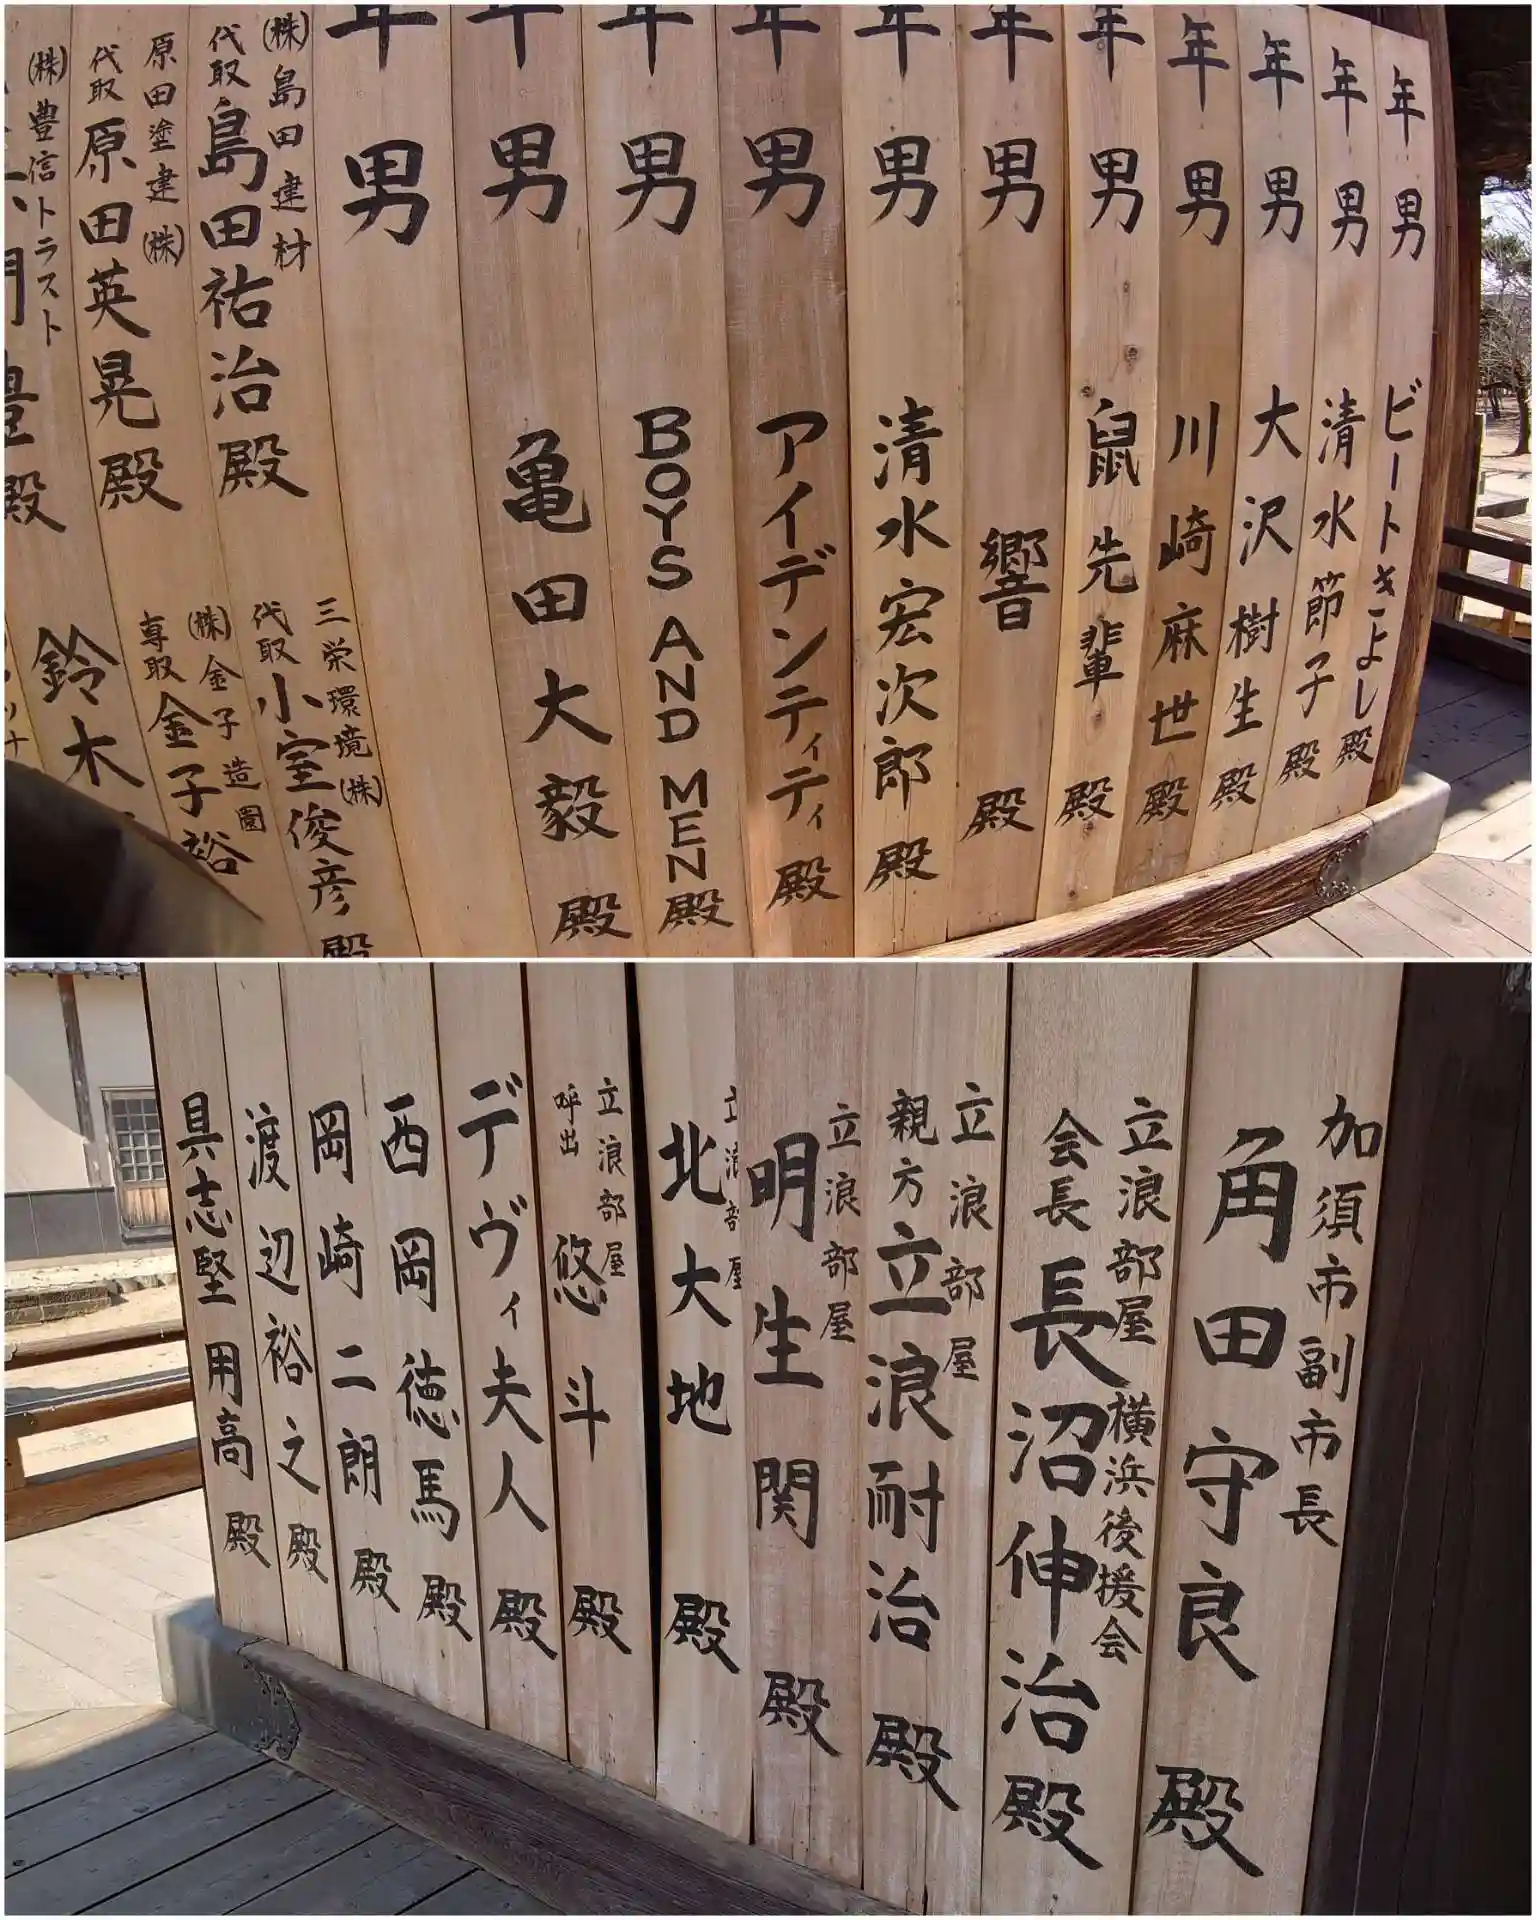 年男 ビートきよし殿
年男 清水節子殿
年男 大沢樹生殿
年男 川崎麻世殿
年男 鼠先輩殿
年男 響殿
年男 清水宏次郎殿
年男 アイデンティティ殿
年男 BOYS AND MEN殿
年男 亀田大毅殿
年男
(株)島田建材
代取 島田祐治殿
三栄環境(株)
代取 小室俊彦殿
原田塗建(株)
代取 原田英晃殿
(株)金子造園
専取 金子裕
(株)豊信トラスト
豊殿
鈴木
加須市副市長
角田守良殿
立浪部屋横浜後援会
会長 長沼伸治殿
立浪部屋
親方 立浪耐治殿
立浪部屋
明生関殿
立浪部屋
北大地殿
立浪部屋
呼出 悠斗殿
デヴィ夫人殿
西岡徳馬殿
岡崎二朗殿
渡辺裕之殿
具志堅用高殿